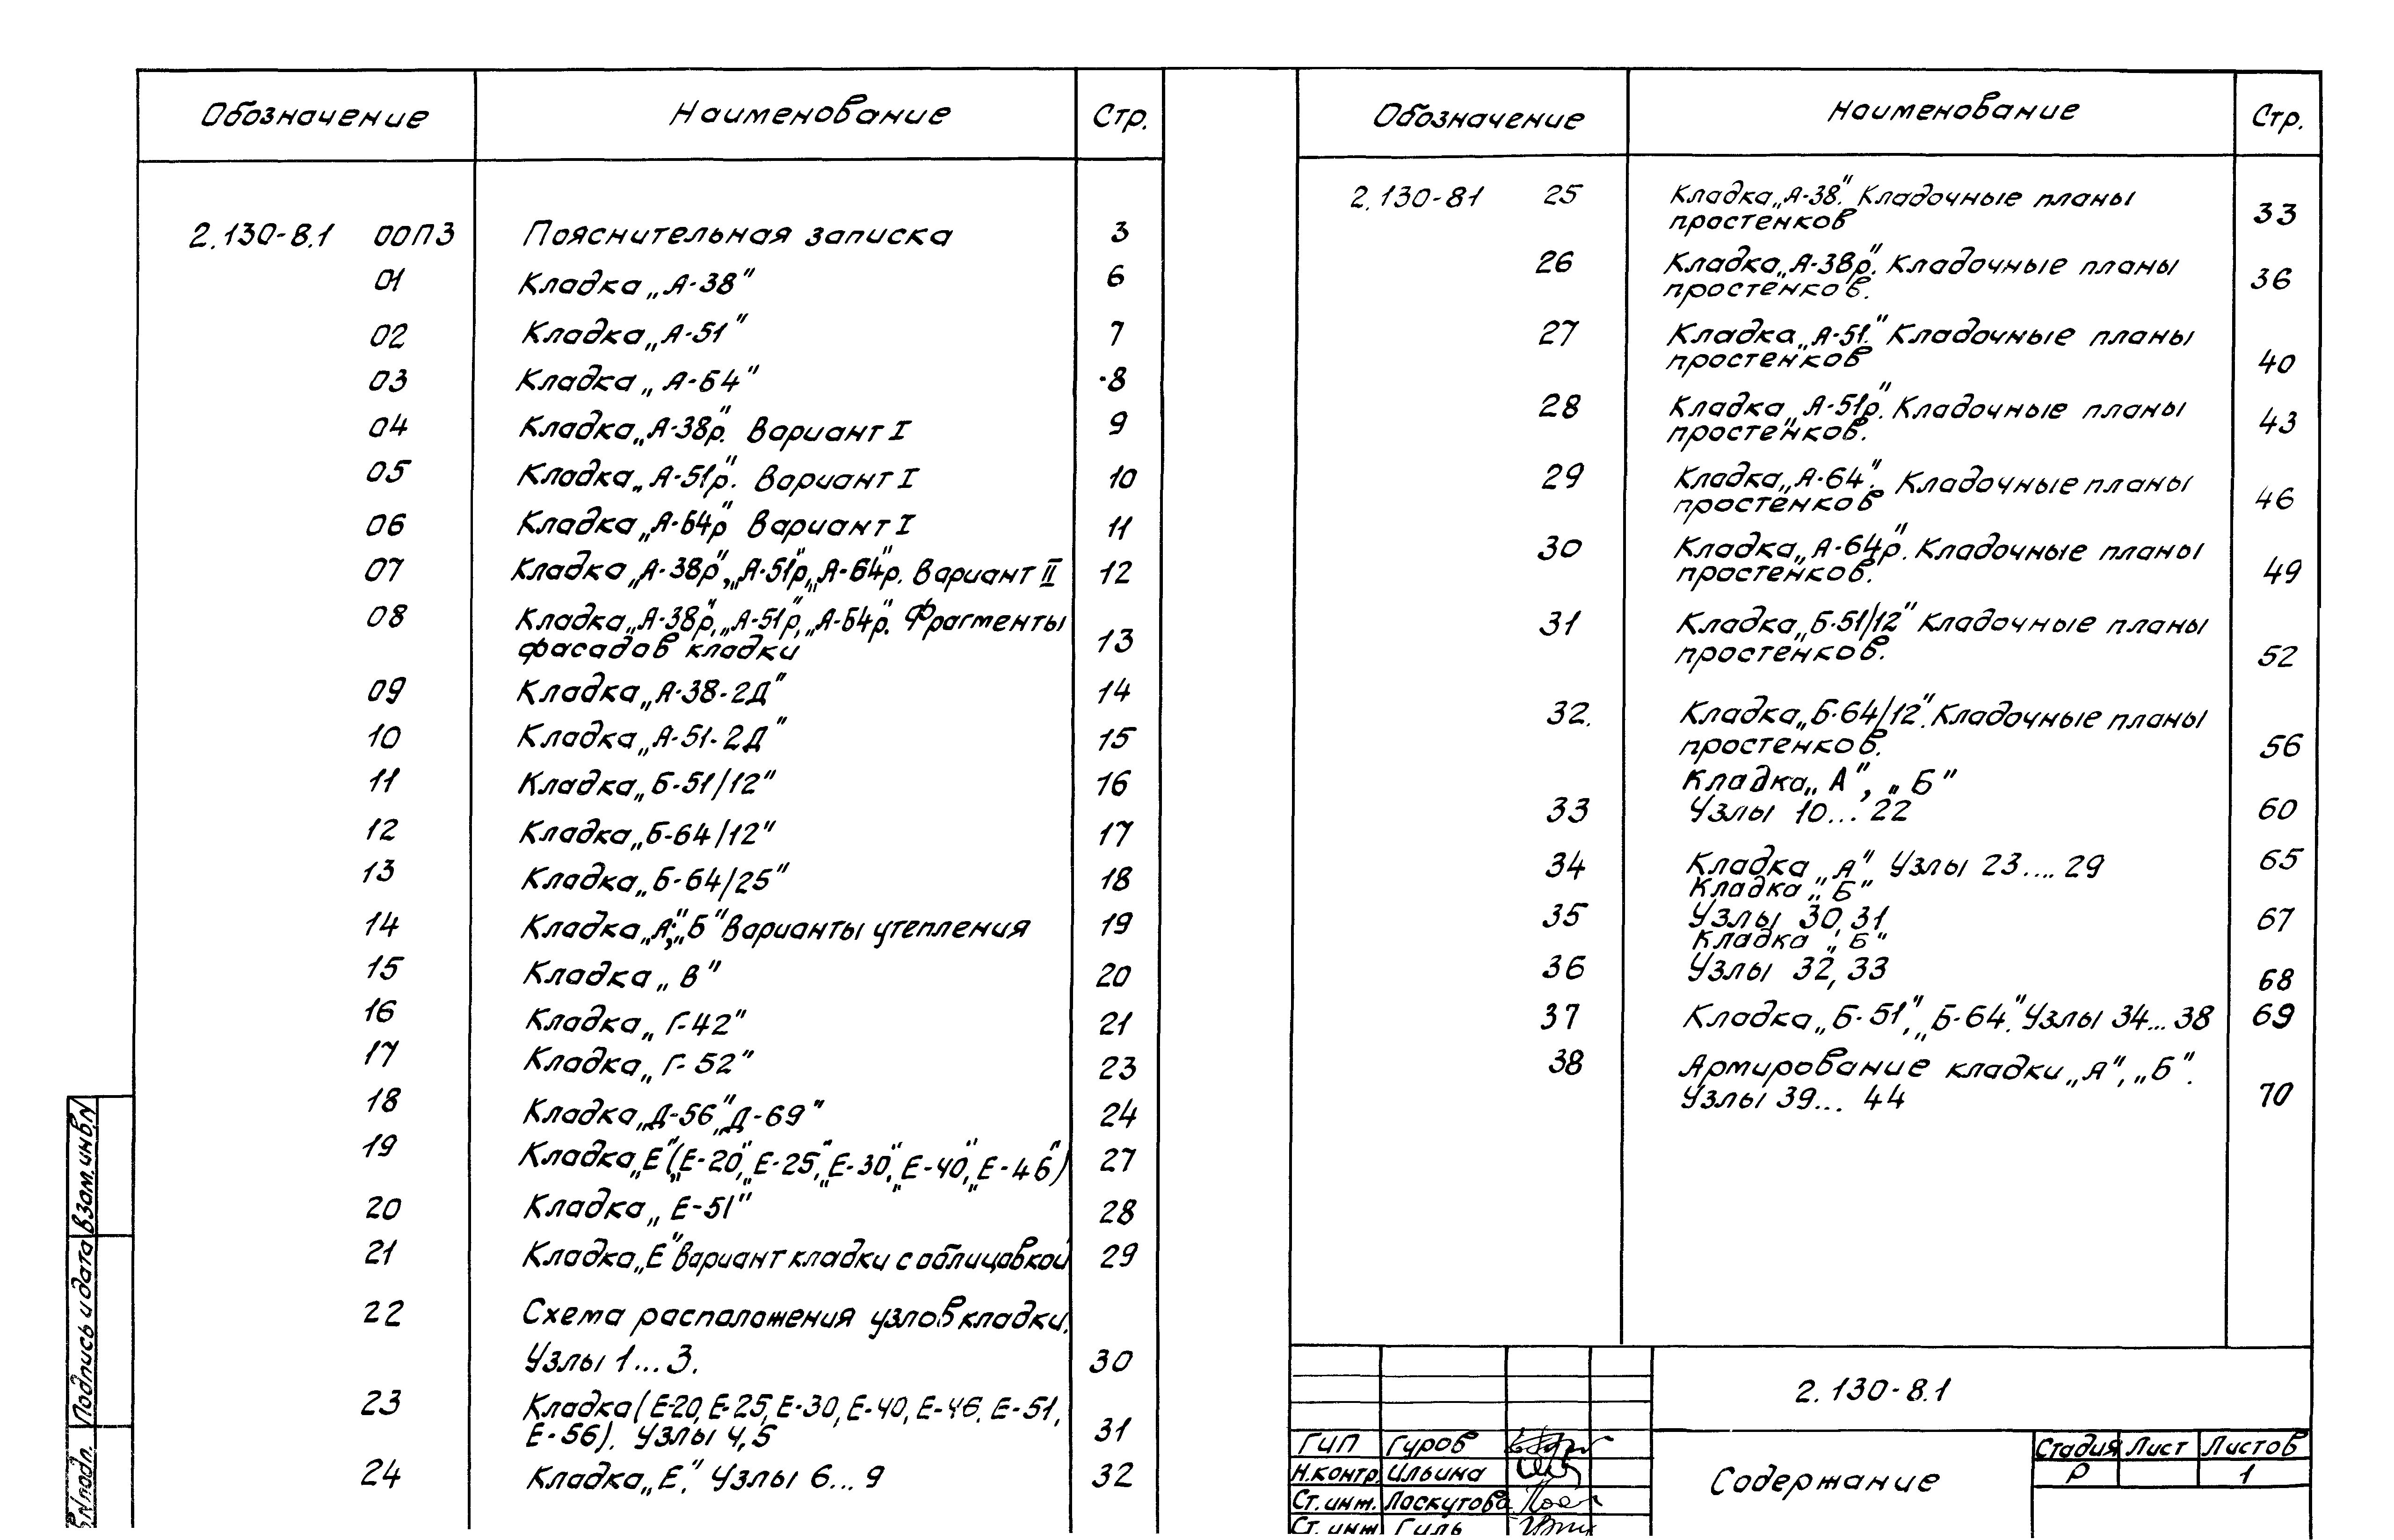 Обозначение Наименование Стр.
2.130-8.1 00ПЗ Пояснительная записка 3
01 Кладка „А-38" 6
02 Кладка „А-51" 7
03 Кладка „А-64" 8
04 Кладка „А-38р". Вариант I 9
05 Кладка „А-51р". Вариант I 10
06 Кладка „А-64р" Вариант I 11
07 Кладка „А-38р", „А-51р", „А-64р". Вариант II 12
08 Кладка „А-38р", „А-51р", „А-64р". Фрагменты
фасадов кладки 13
09 Кладка „А-38-2Д" 14
10 Кладка „А-51-2Д" 15
11 Кладка „Б-51/12" 16
12 Кладка „Б-64/12" 17
13 Кладка „Б-64/25" 18
14 Кладка „А", „Б" Варианты утепления 19
15 Кладка „В" 20
16 Кладка „Г-42" 21
17 Кладка „Г-52" 23
18 Кладка „Д-56", „Д-69" 24
19 Кладка „Е" („Е-20", „Е-25", „Е-30", „Е-40", „Е-46") 27
20 Кладка „Е-51" 28
21 Кладка „Е" Вариант кладки с облицовкой 29
22 Схема расположения узлов кладки.
Узлы 1...3. 30
23 Кладка (Е-20, Е-25, Е-30, Е-40, Е-46, Е-51,
Е-56). Узлы 4,5 31
24 Кладка „Е". Узлы 6...9 32
Обозначение Наименование Стр.
2.130-8.1 25 Кладка „А-38". Кладочные планы
простенков 33
26 Кладка „А-38р". Кладочные планы
простенков. 36
27 Кладка „А-51". Кладочные планы
простенков 40
28 Кладка „А-51р". Кладочные планы
простенков. 43
29 Кладка „А-64". Кладочные планы
простенков 46
30 Кладка „А-64р". Кладочные планы
простенков. 49
31 Кладка „Б-51/12" Кладочные планы
простенков. 52
32. Кладка „Б-64/12". Кладочные планы
простенков. 56
Кладка „А", „Б"
33 Узлы 10...22 60
34 Кладка „А" Узлы 23....29 65
Кладка „Б"
35 Узлы 30,31 67
Кладка „Б"
36 Узлы 32,33 68
37 Кладка „Б-51", „Б-64". Узлы 34...38 69
38 Армирование кладки „А", „Б".
Узлы 39...44 70
2.130-8.1
Содержание
Стадия Лист Листов
Р 1
ГИП Гуров
Н.контр. Ильина
Ст.инж. Лоскутова
Ст.инж Гиль
Взам.инв.N
Подпись и дата
в.N подл.